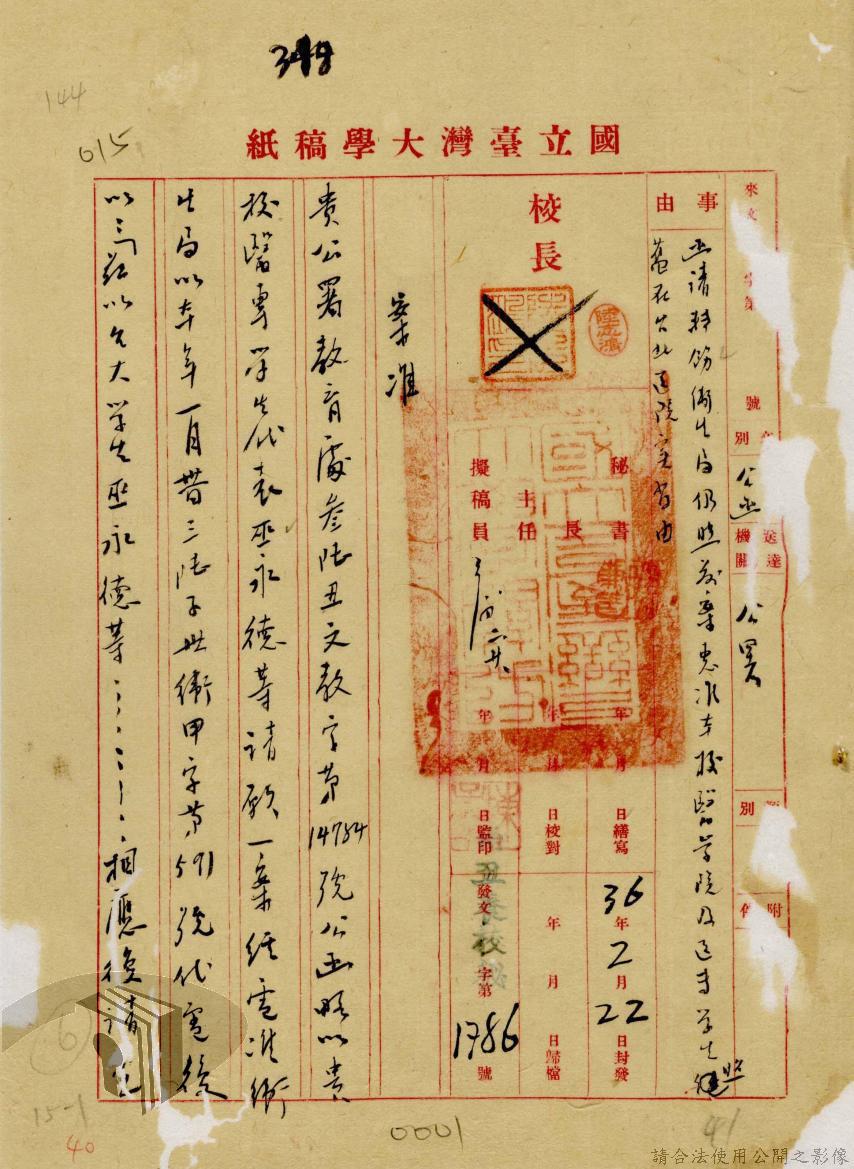 349
144
615
國立臺灣大學稿紙
來文 字第 號
別 公函
送達機關 公署
別
附件
事由
函請轉飭衛生局仍照前案惠准本校醫學院及醫專學生
舊在台北醫院實習由
校長
秘書長
主任
擬稿員
年 月 日繕寫
年 月 日校對
年 月 日監印
36年2月22日封發
年 月 日歸檔
發文 字第1786號
案准
貴公署教育處叁陸丑文教字第14784號公函略以貴
校醫專學生代表巫永德等請願一案經電准衛
生局以本年一月卅三陸子世衛甲字第591號代電復
以三茲以台大學生巫永德等
相應復請
6
15-1
40
0001
41
請合法使用公開之影像